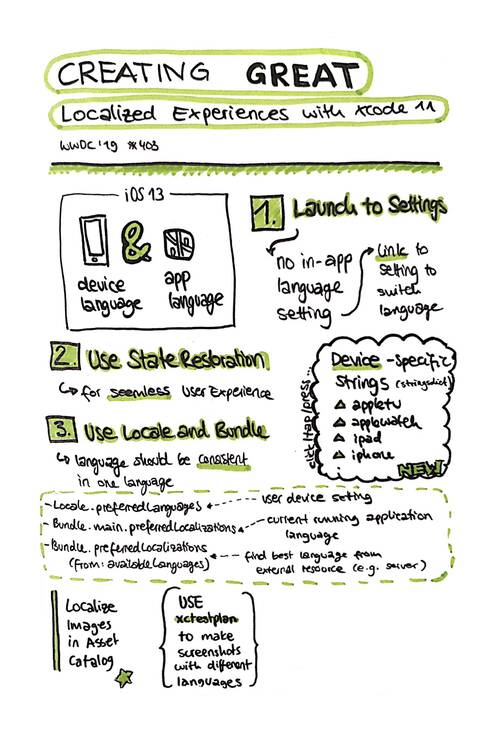 CREATING GREAT
Localized Experiences with xcode 11
WWDC '19 #403
iOS 13
&
device
language
app
language
1. Launch to Settings
no in-app
language
setting
Link to
setting to
switch
language
2. Use State Restoration
for seemless User Experience
3. Use Locale and Bundle
language should be consistent
in one language
Device-specific
Strings (stringsdict)
appletv
applewatch
ipad
iphone
click/tap/press...
NEW
- Locale.preferredLanguages
user device setting
- Bundle.main.preferredLocalizations
current running application
language
- Bundle.preferredLocalizations
(from: availableLanguages)
find best language from
external resource (e.g. server)
Localize
Images
in Asset
Catalog
USE
xctestplan
to make
screenshots
with different
languages